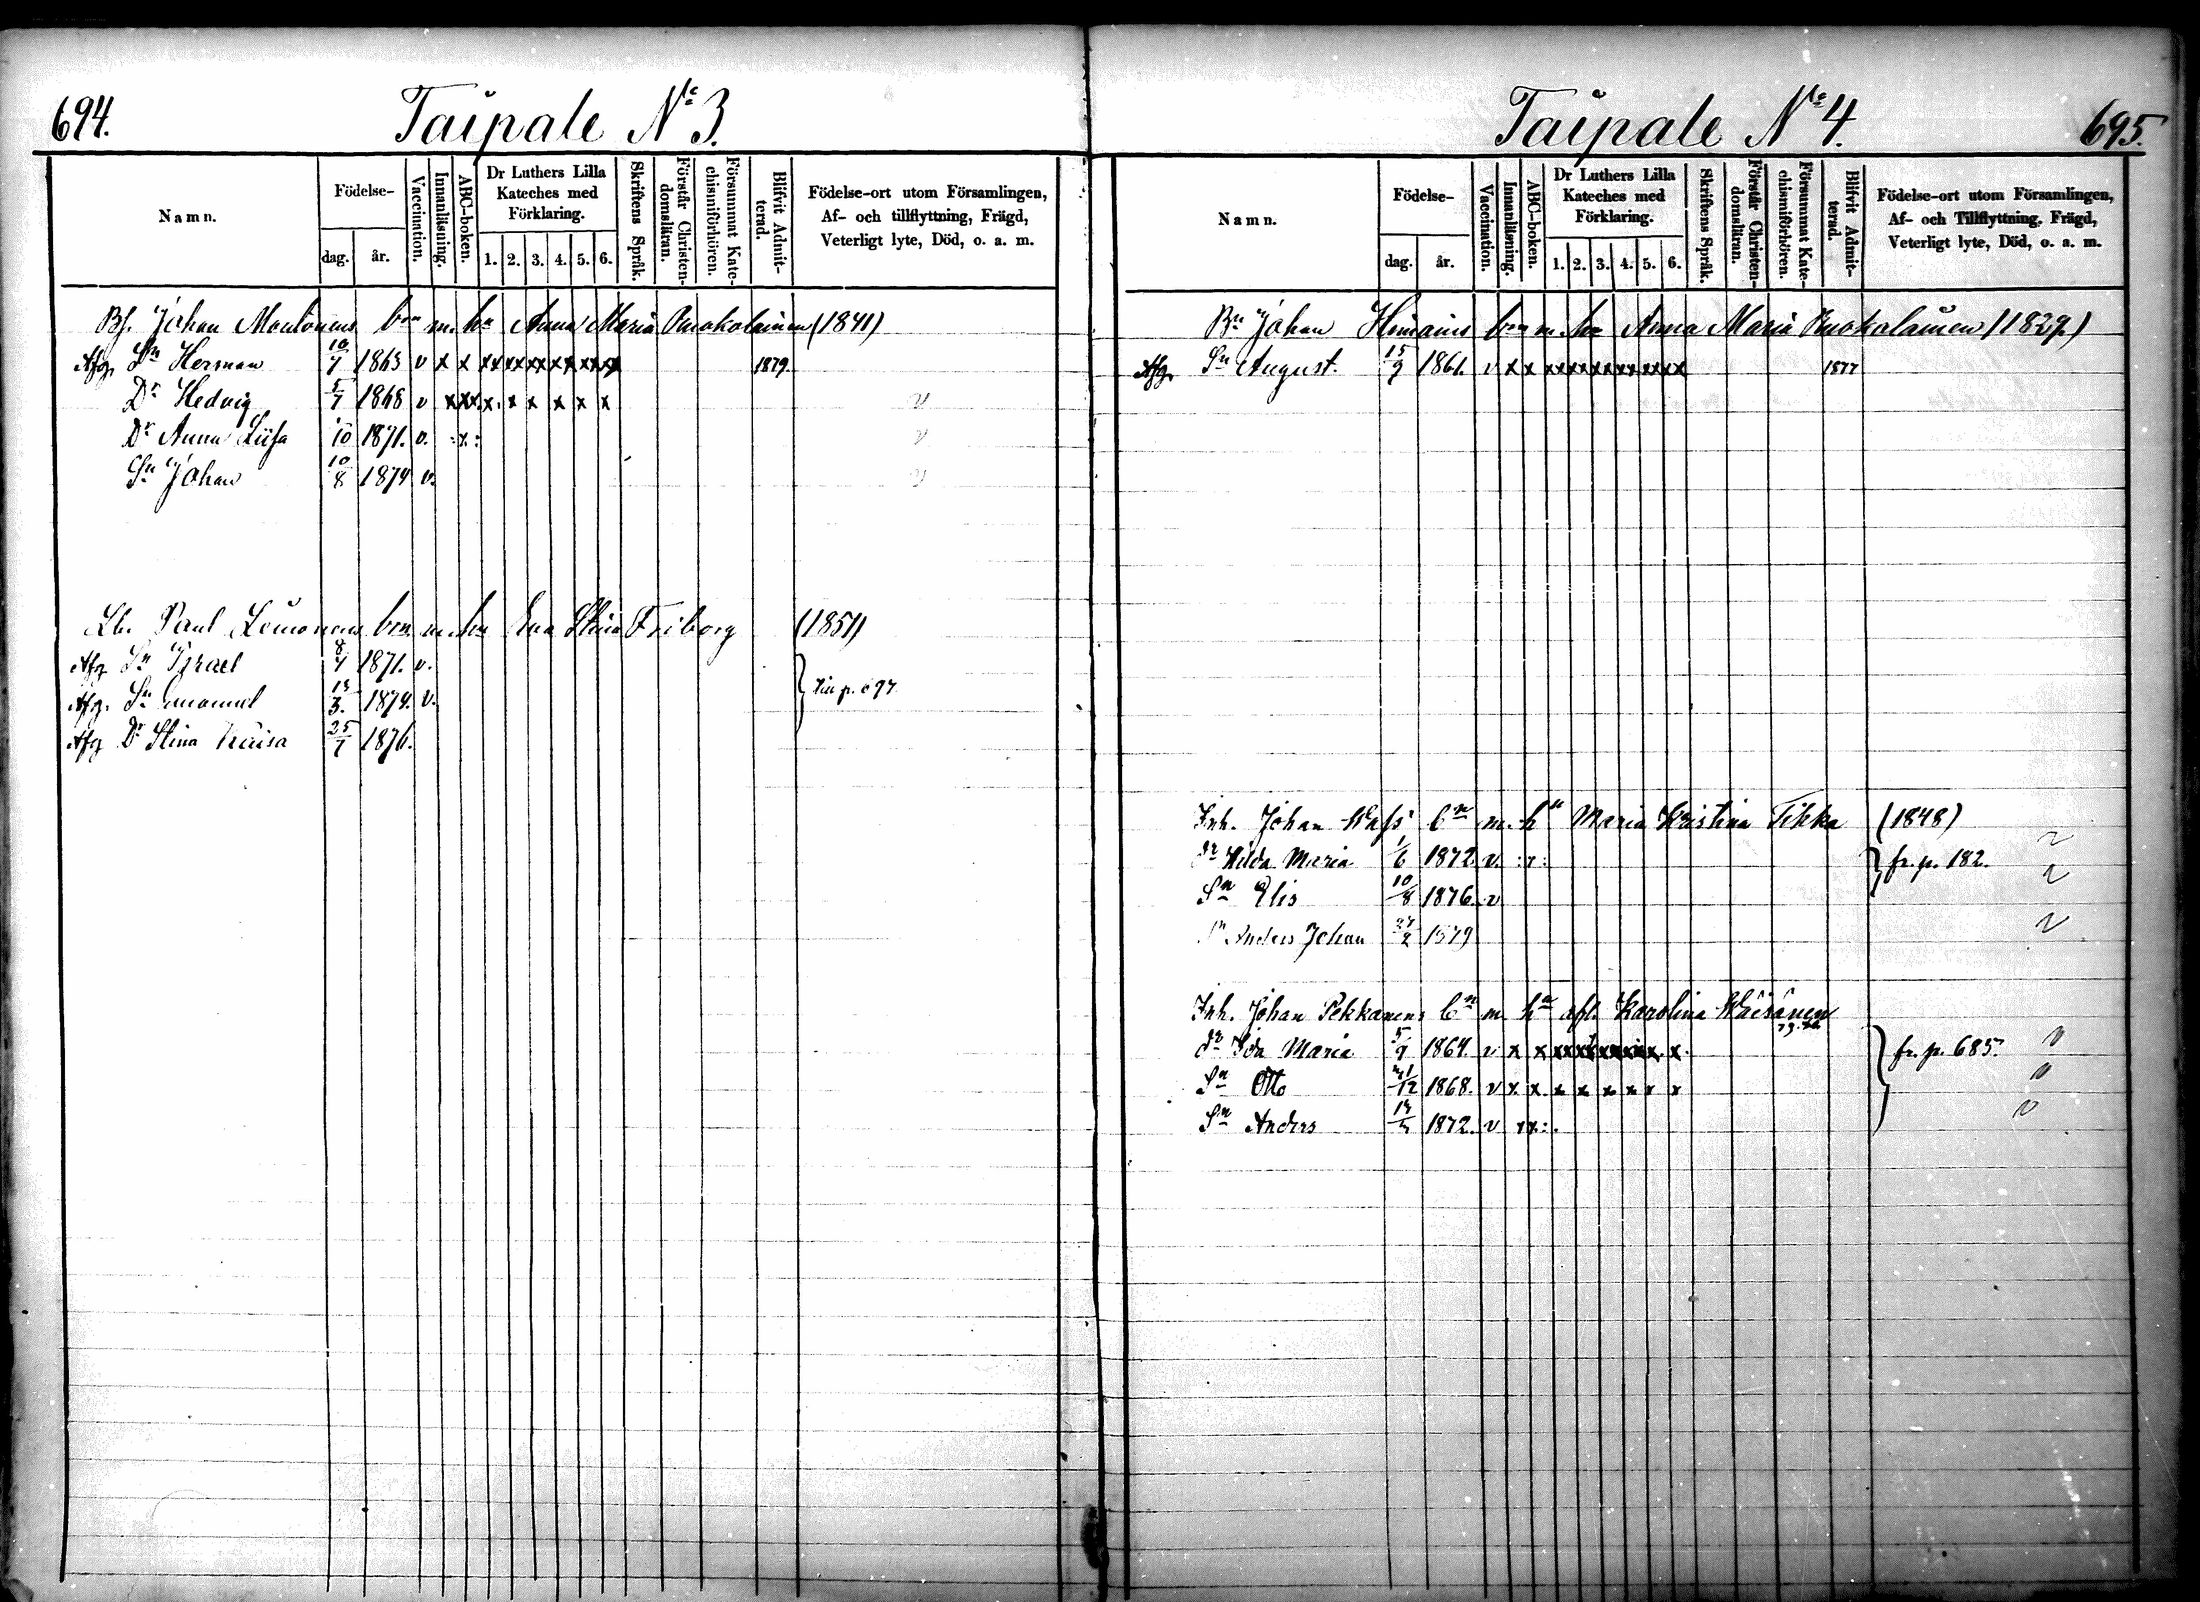 694.
Taipale No 3.
Namn.
Födelse-
dag.
år.
Vaccination.
Innanläsning.
ABC-boken.
Dr Luthers Lilla Kateches med Förklaring.
1. 2. 3. 4. 5. 6.
Skriftens Språk.
Förstår Christen-domsläran.
Försummat Kate-chismiförhören.
Blifvit Admit-terad.
Födelse-ort utom Församlingen,
Af- och tillflyttning, Frägd,
Veterligt lyte, Död, o. a. m.
Johan bn m. hu Anna Maria (1841)
Afg. Sn Herman 10/7 1863 v x x xx xx xx xx xx xx 1879.
Dr Hedvig 5/7 1868 v xxx x. x x x x x
Dr Anna Liisa 10 1871. v. :x:
Sn Johan 10/8 1874 v.
Paul bn m. hn Eva Stina Friborg (1851)
Afg Sn Israel 8/4 1871. v.
Afg. Sn Emanuel 13/3. 1874. v.
Afg Dr Stina 25/7 1876.
695.
Taipale No 4.
Namn.
Födelse-
dag.
år.
Vaccination.
Innanläsning.
ABC-boken.
Dr Luthers Lilla Kateches med Förklaring.
1. 2. 3. 4. 5. 6.
Skriftens Språk.
Förstår Christen-domsläran.
Försummat Kate-chismiförhören.
Blifvit Admit-terad.
Födelse-ort utom Församlingen,
Af- och Tillflyttning, Frägd,
Veterligt lyte, Död, o. a. m.
Johan bn m. hu Anna Maria Ruokolainen (1829.)
Afg. Sn August. 15/9 1861. v x x xx xx xx xx xx xx 1877
Inh. Johan bn m. hu Maria Kristina Tikka (1848)
dr Hilda Maria 1/6 1872 v. :x: fr. p. 182.
Sn Elis 10/8 1876. v
Sn Anders Johan 27/2 1879
Inh. Johan Pekkanens bn m. hu afl. Karolina Wäisänen
dr Ida Maria 5/9 1864. v x x xx xx xx xx x. x. fr. p. 685.
Sn Otto 1868. v x. x. x x x x x
Sn Anders 1872. v xx:.